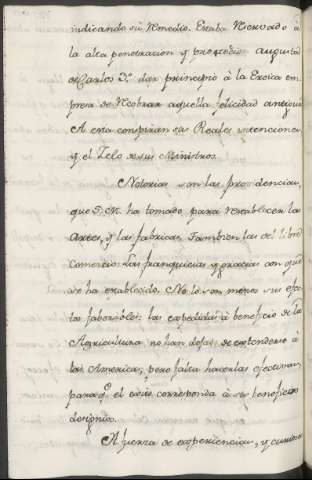 indicando su Remedio. Estaba Reservado à
la alta penetracion y proteccion augusta
de Carlos 3.º dar principio à la Eroica em
presa de Recobrar aquella felicidad antigua
A esta conspiran sus Reales intenciones
y el Zelo de sus Ministros.
Notorias son las providencias,
que S. M. ha tomado para restablecer las
Artes, y las fabricas. Tambien las del libre
Comercio: las franquicias y gracias con que
se ha establecido. No lo son menos sus efe
tos faborables: las expedidas à beneficio de la
Agricultura no han dejado de extenderse à
las Americas; pero falta hacerlas efectivas,
para q.e el exito corresponda à sus beneficos
designios.
A fuerza de experiencias, y